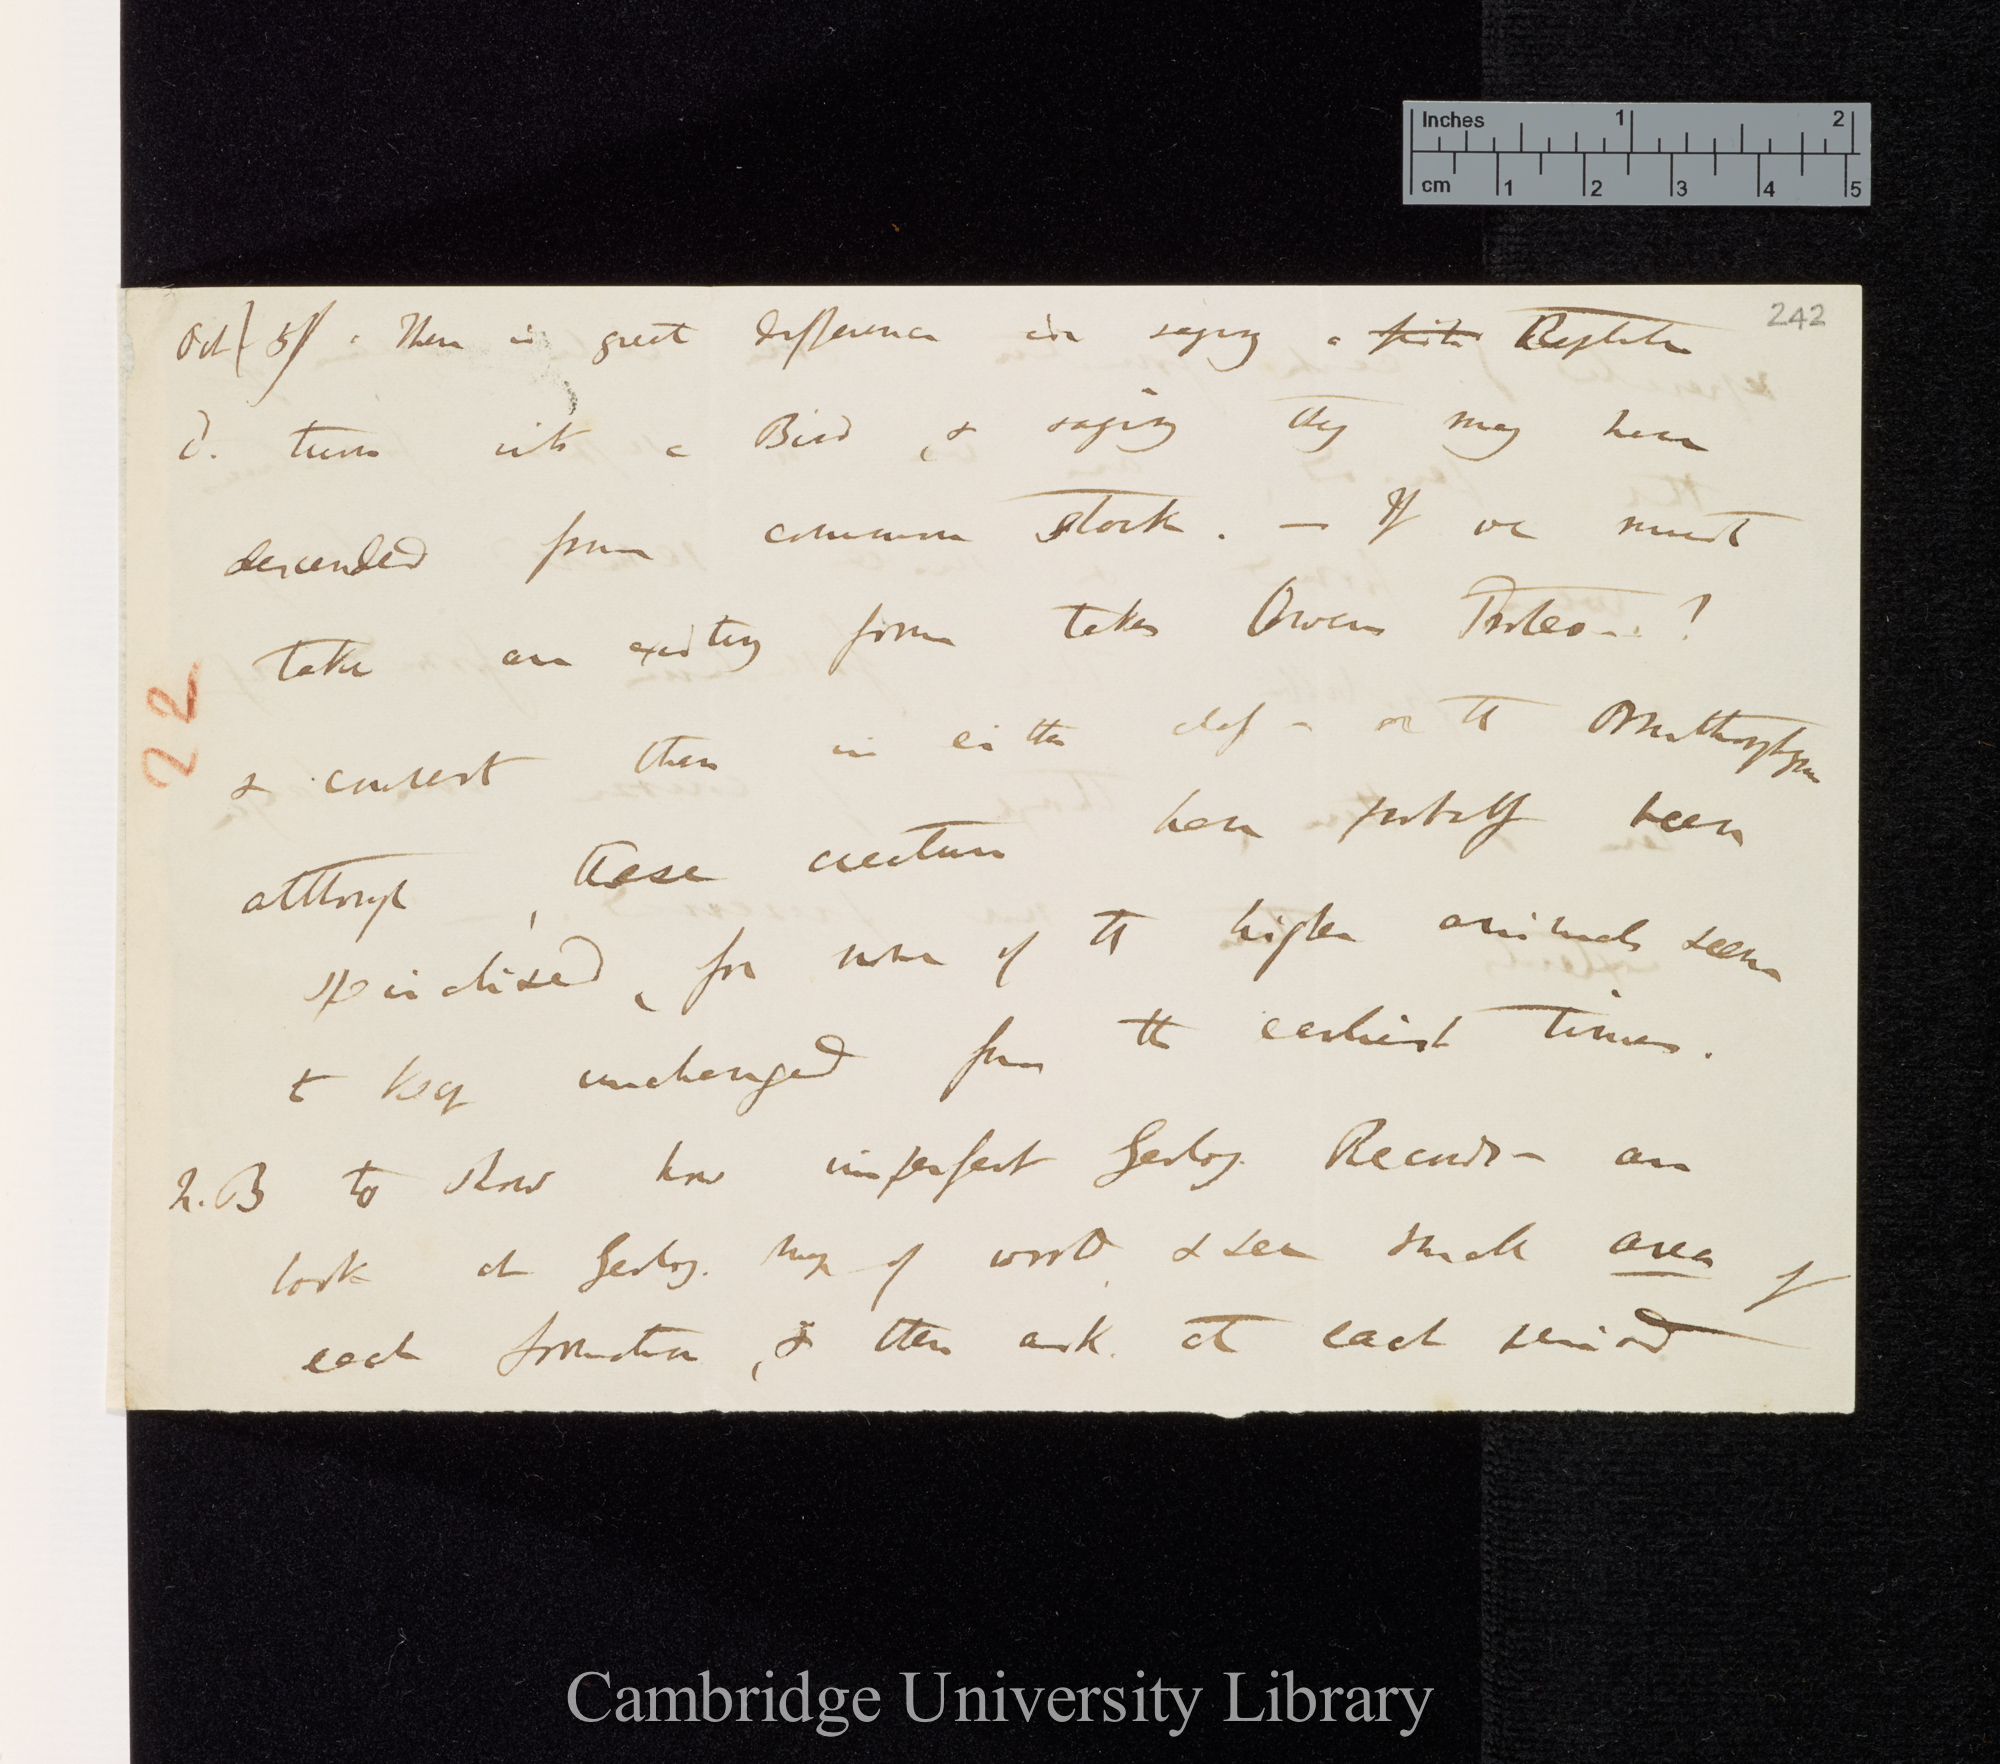 Inches 1 2
cm 1 2 3 4 5
242
Oct/ 57/. There is great difference in saying a Reptile
d. turn into a Bird, & saying they may have
descended from common stock. — If we must
take an existing form take Owens Proteo-. ?
& convert them in either — or the Ornithorhynchus
although, these creatures have probably been
specialised, for none of the higher animals seem
to keep unchanged from the earliest times.
22
N.B to show how imperfect Geolog. Records — an
look at Geolog. Map of world, & see small area of
each formation, & then ask. at each period
Cambridge University Library